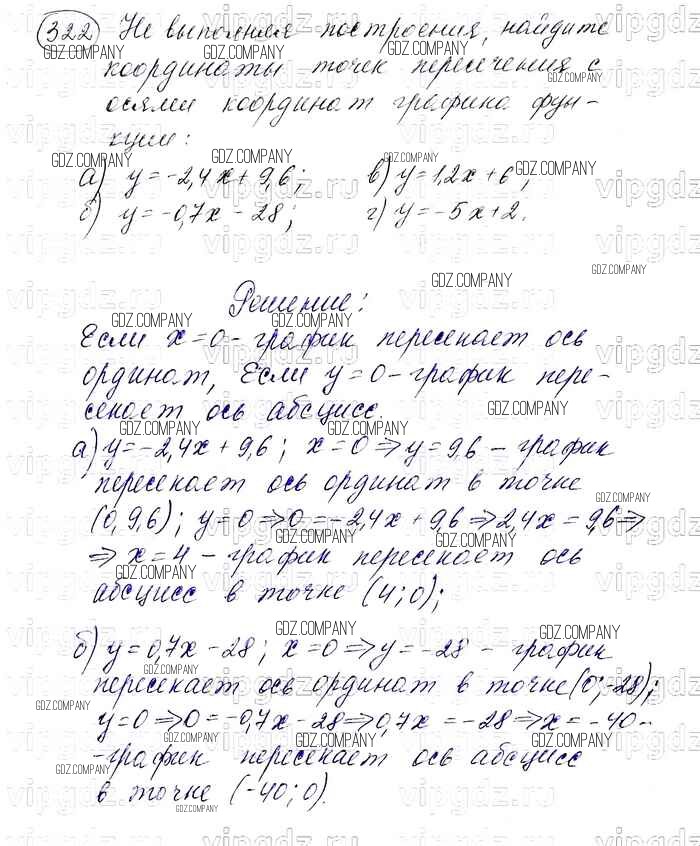 322 Не выполняя построения, найдите
координаты точек пересечения с
осями координат графика фун-
кции:
а) y = -2,4x + 9,6; в) y = 1,2x + 6;
б) y = -0,7x - 28; г) y = -5x + 2.
Решение:
Если x = 0 - график пересекает ось
ординат, Если y = 0 - график пере-
секает ось абсцисс.
а) y = -2,4x + 9,6; x = 0 ⇒ y = 9,6 - график
пересекает ось ординат в точке
(0, 9,6); y = 0 ⇒ 0 = -2,4x + 9,6 ⇒ 2,4x = 9,6 ⇒
⇒ x = 4 - график пересекает ось
абсцисс в точке (4; 0);
б) y = 0,7x - 28; x = 0 ⇒ y = -28 - график
пересекает ось ординат в точке (0; -28);
y = 0 ⇒ 0 = -0,7x - 28 ⇒ 0,7x = -28 ⇒ x = -40 -
- график пересекает ось абсцисс
в точке (-40; 0).
GDZ.COMPANY
vipgdz.ru